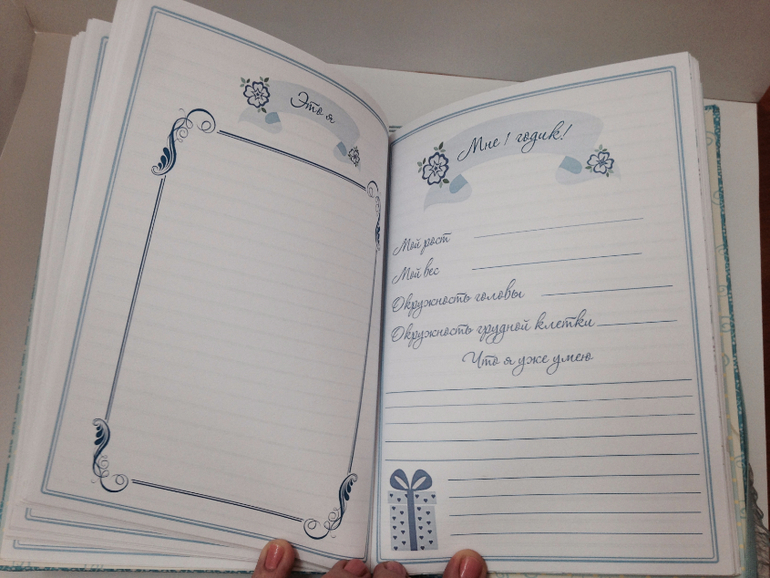 Это я
Мне 1 годик!
Мой рост
Мой вес
Окружность головы
Окружность грудной клетки
Что я уже умею